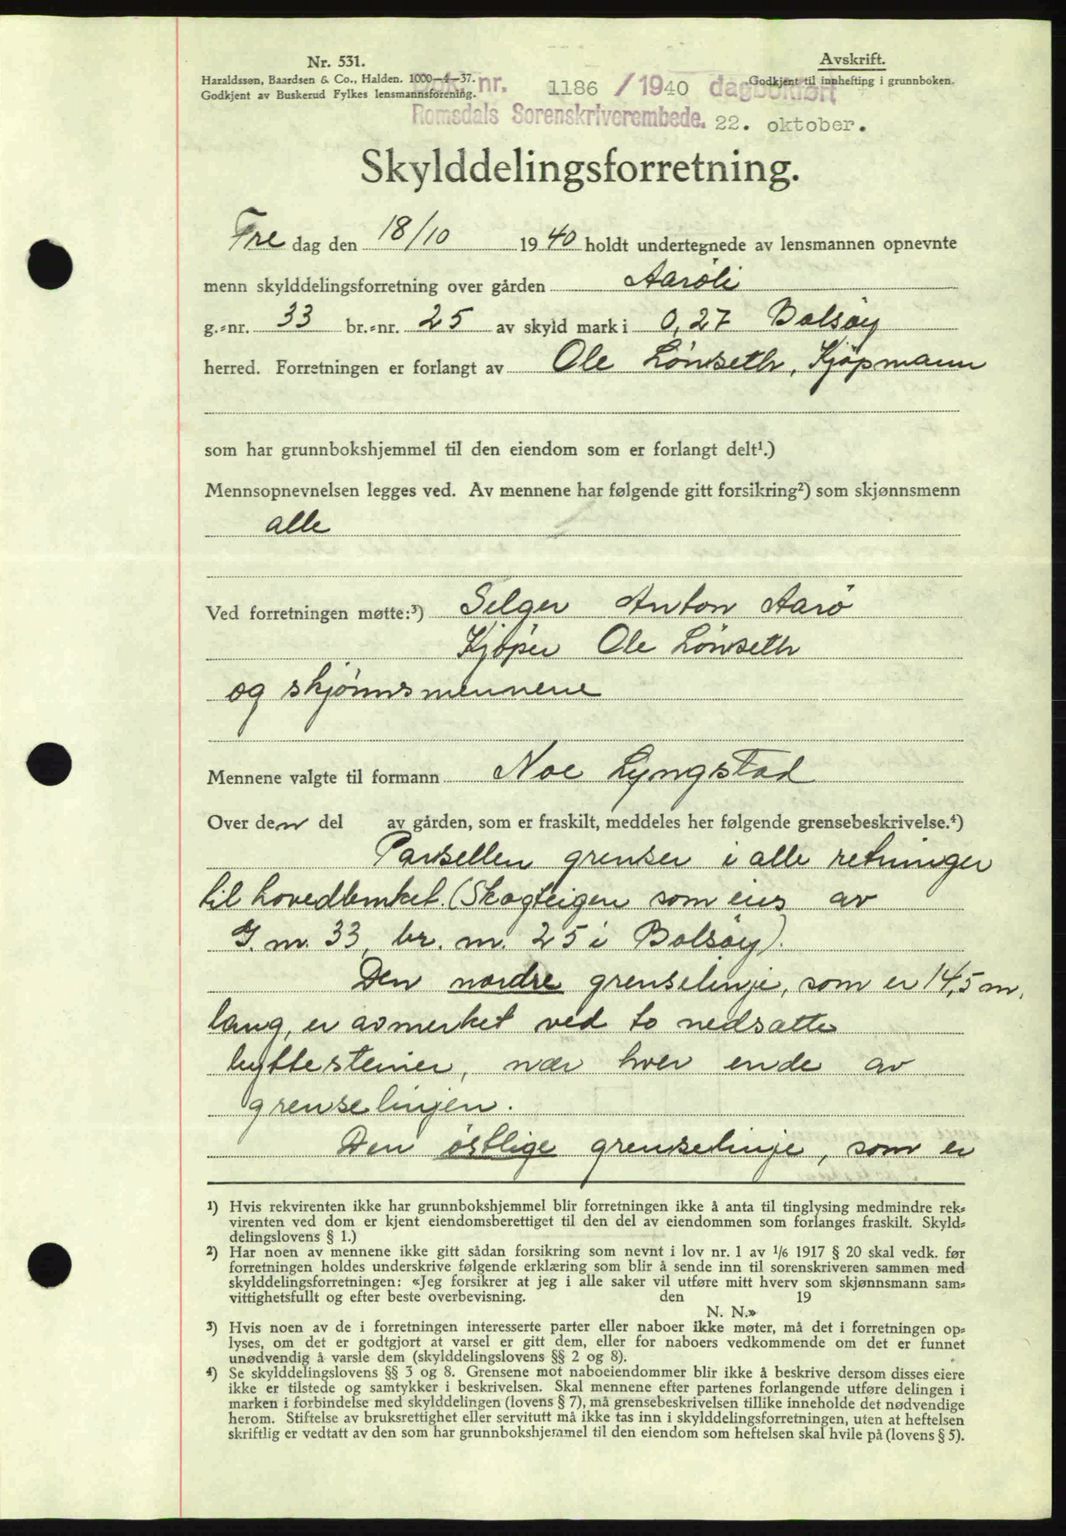 Nr. 531.
Haraldssen, Baardsen & Co., Halden. 1000—4—37.
Godkjent av Buskerud Fylkes lensmannsforening.
Avskrift.
Godkjent til innhefting i grunnboken.
nr. 1186 / 1940 dagbokført
Romsdals Sorenskriverembede. 22. oktober.
Skylddelingsforretning.
Fre dag den 18/10 1940 holdt undertegnede av lensmannen opnevnte
menn skylddelingsforretning over gården Aaröli
g.-nr. 33 br.-nr. 25 av skyld mark i 0,27 Bolsöy
herred. Forretningen er forlangt av Ole Lönseth, Kjöpmann
som har grunnbokshjemmel til den eiendom som er forlangt delt¹.)
Mennsopnevnelsen legges ved. Av mennene har følgende gitt forsikring²) som skjønnsmenn
alle
Ved forretningen møtte:³) Selger Anton Aarö
Kjöper Ole Lönseth
og skjönnsmennene
Mennene valgte til formann Noe Lyngstad
Over den del av gården, som er fraskilt, meddeles her følgende grensebeskrivelse.⁴)
Parsellen grenser i alle retninger
til hovedbruket. (Skogteigen som eies av
G. nr. 33, br. nr. 25 i Bolsöy).
Den nordre grenselinje, som er 14,5 m.
lang, er avmerket ved to nedsatte
byttesteiner, nær hver ende av
grenselinjen.
Den östlige grenselinje, som er
¹) Hvis rekvirenten ikke har grunnbokshjemmel blir forretningen ikke å anta til tinglysing medmindre rek-
virenten ved dom er kjent eiendomsberettiget til den del av eiendommen som forlanges fraskilt. Skyld-
delingslovens § 1.)
²) Har noen av mennene ikke gitt sådan forsikring som nevnt i lov nr. 1 av 1/6 1917 § 20 skal vedk. før
forretningen holdes underskrive følgende erklæring som blir å sende inn til sorenskriveren sammen med
skylddelingsforretningen: «Jeg forsikrer at jeg i alle saker vil utføre mitt hverv som skjønnsmann sam-
vittighetsfullt og efter beste overbevisning. den 19
N. N.»
³) Hvis noen av de i forretningen interesserte parter eller naboer ikke møter, må det i forretningen op-
lyses, om det er godtgjort at varsel er gitt dem, eller for naboers vedkommende om det er funnet
unødvendig å varsle dem (skylddelingslovens §§ 2 og 8).
⁴) Se skylddelingslovens §§ 3 og 8. Grensene mot naboeiendommer blir ikke å beskrive dersom disses eiere
ikke er tilstede og samtykker i beskrivelsen. Skal mennene efter partenes forlangende utføre delingen i
marken i forbindelse med skylddelingen (lovens § 7), må grensebeskrivelsen tillike inneholde det nødvendige
herom. Stiftelse av bruksrettighet eller servitutt må ikke tas inn i skylddelingsforretningen, uten at heftelsen
skriftlig er vedtatt av den som har grunnbokshjemmel til den eiendom som heftelsen skal hvile på (lovens § 5).